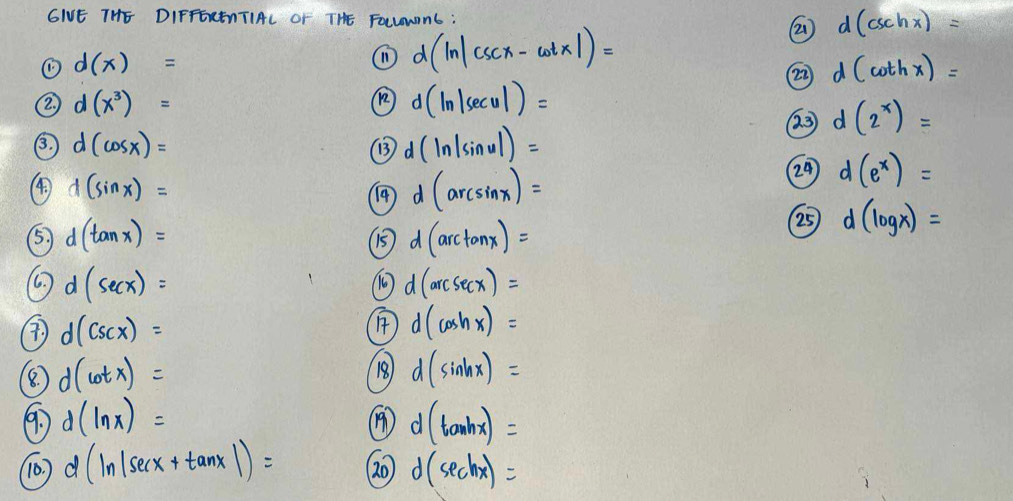 GIVE THE DIFFERENTIAL OF THE FOLLOWING:
1. d(x) =
2. d(x³) =
3. d(cosx) =
4. d(sinx) =
5. d(tanx) =
6. d(secx) =
7. d(cscx) =
8. d(cotx) =
9. d(lnx) =
10. d(ln|secx + tanx|) =
11 d(ln|cscx - cotx|) =
12 d(ln|secu|) =
13 d(ln|sinu|) =
14 d(arcsinx) =
15 d(arctanx) =
16 d(arcsecx) =
17 d(coshx) =
18 d(sinhx) =
19 d(tanhx) =
20 d(sechx) =
21 d(cschx) =
22 d(cothx) =
23 d(2ˣ) =
24 d(eˣ) =
25 d(logx) =